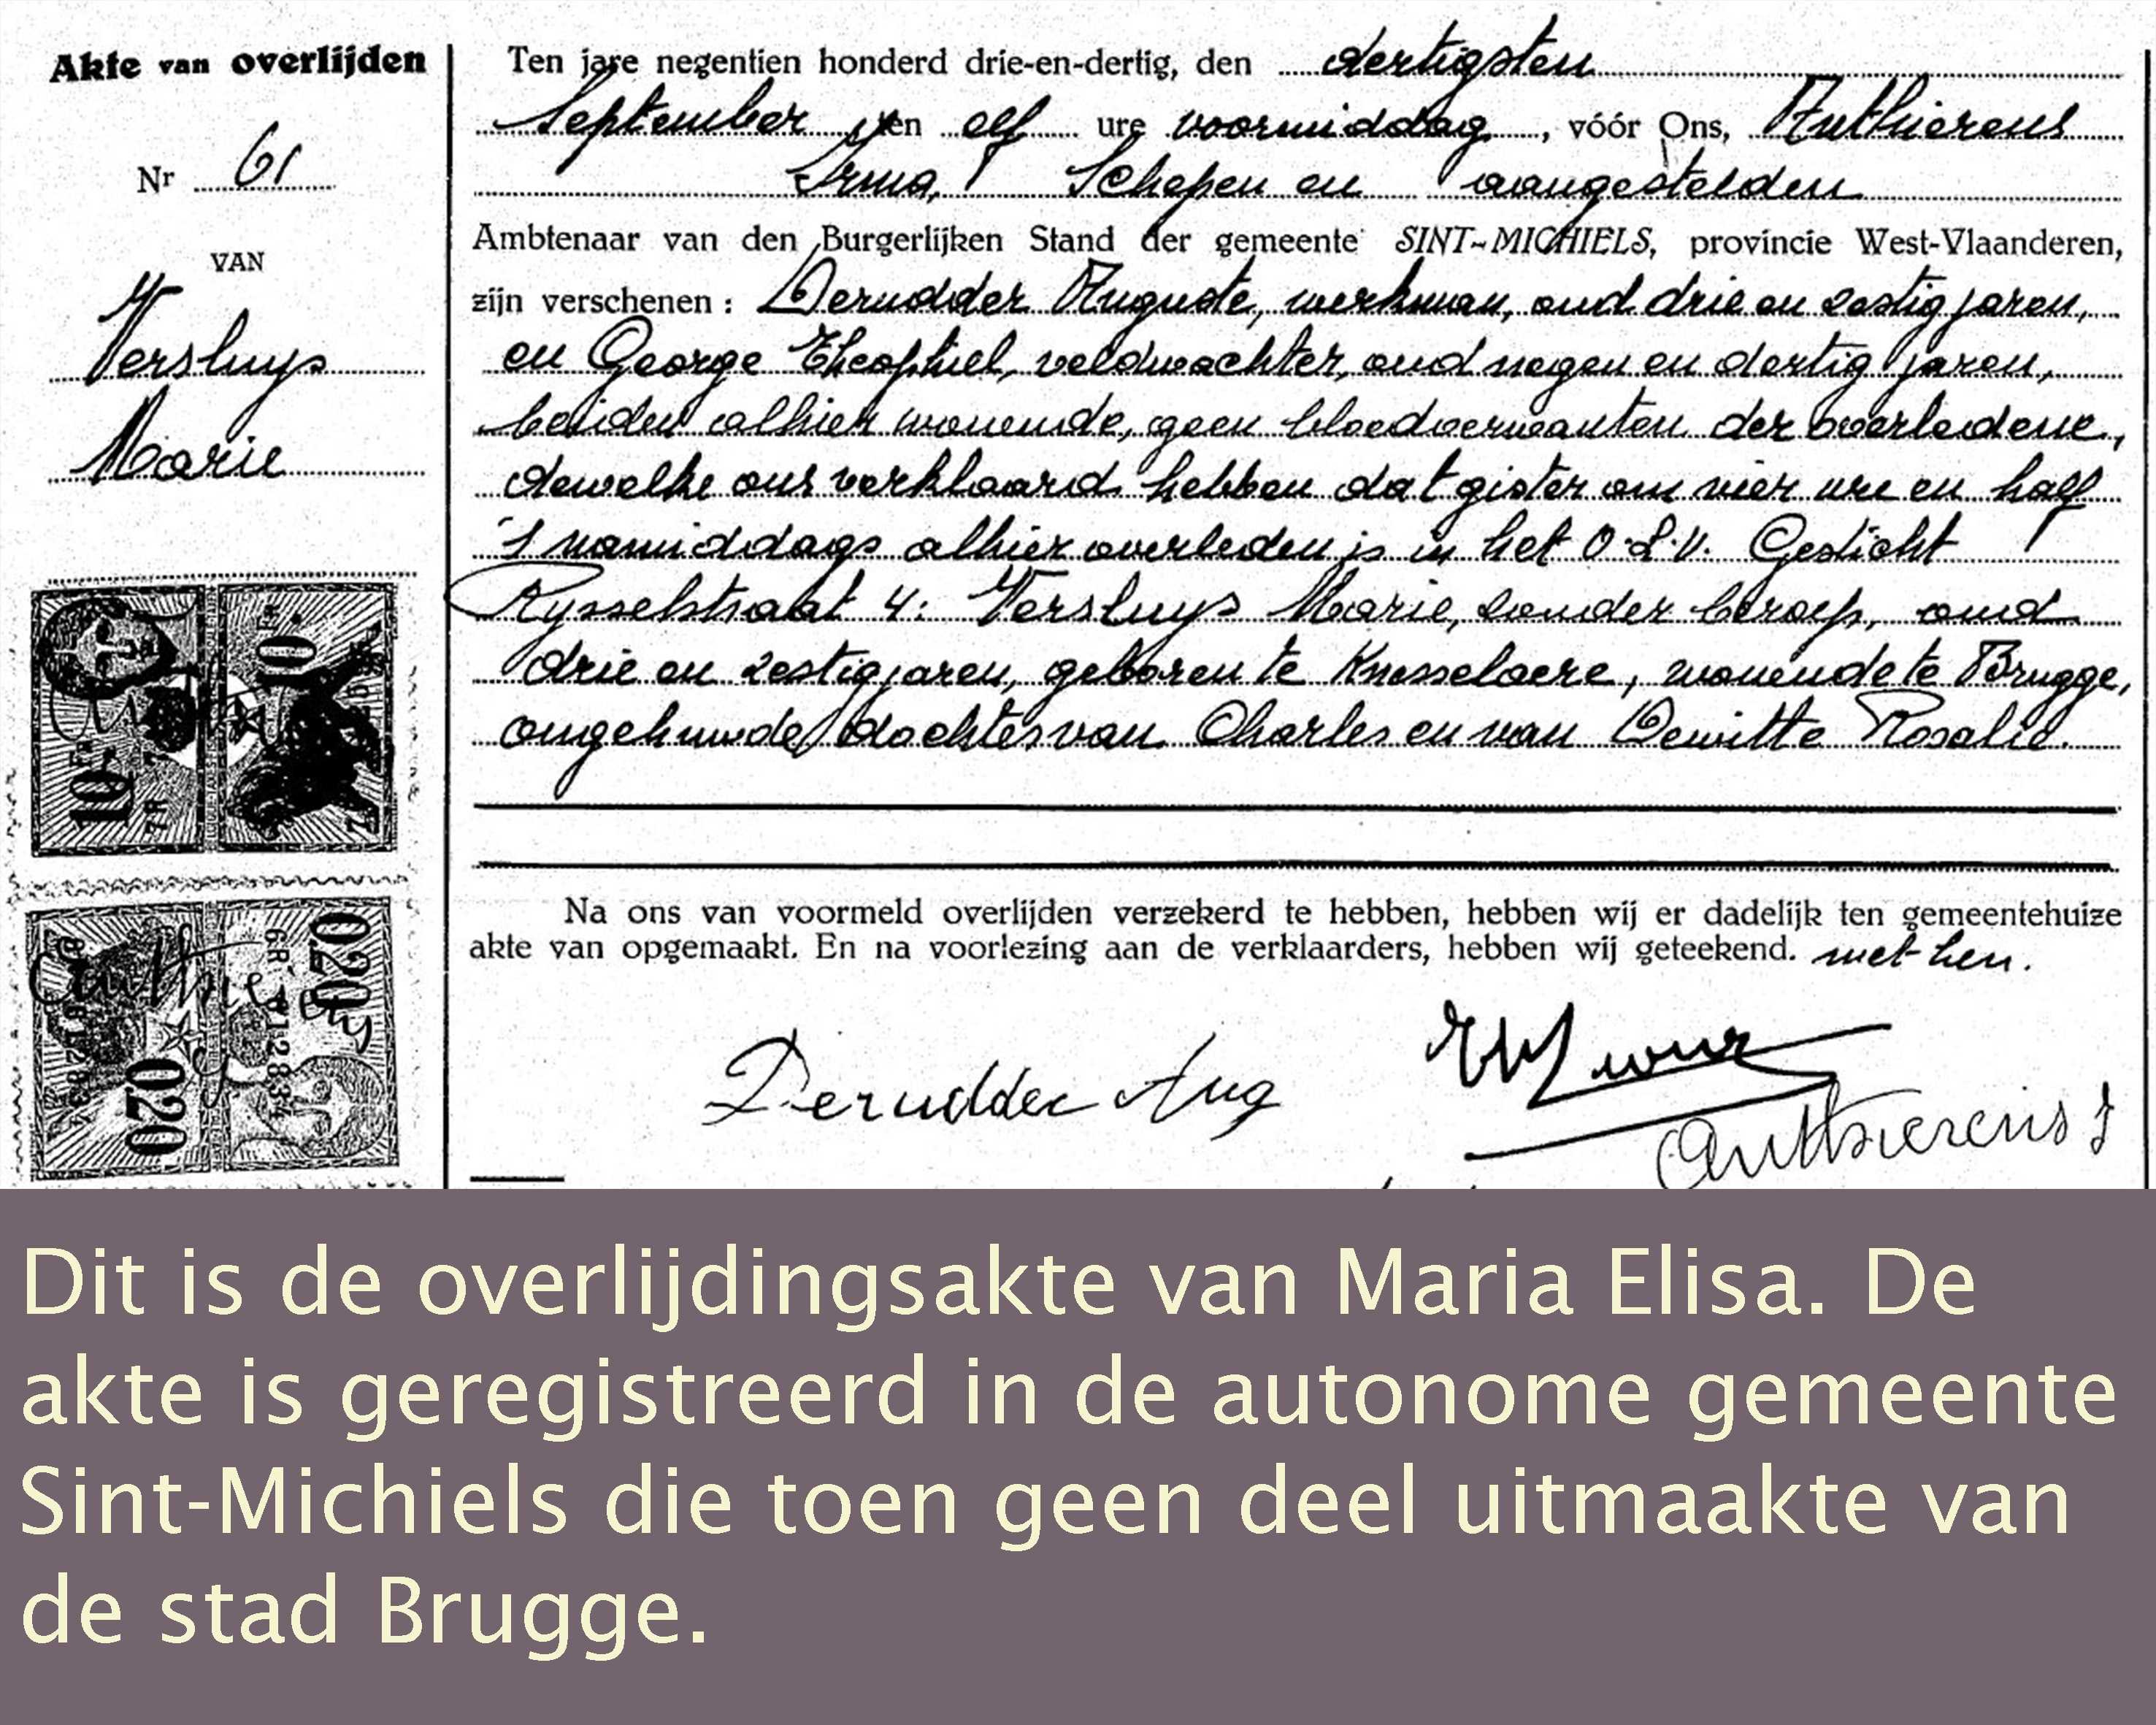 Akte van overlijden
Nr 61
VAN
Versluys
Marie
Ten jare negentien honderd drie-en-dertig, den dertigsten
September ten elf ure voormiddag, vóór Ons, Authierens
Irma, Schepen en aangestelden
Ambtenaar van den Burgerlijken Stand der gemeente SINT-MICHIELS, provincie West-Vlaanderen,
zijn verschenen : Derudder Auguste, werkman, oud drie en zestig jaren,
en George Theophiel, veldwachter, oud negen en dertig jaren,
beiden alhier wonende, geen bloedverwanten der overledene,
dewelke ons verklaard hebben dat gister om vier ure en half
's namiddags alhier overleden is in het O.L.V. Gesticht
Rysselstraat 4: Versluys Marie, zonder beroep, oud
drie en zestig jaren, geboren te Knesselaere, wonende te Brugge,
ongehuwde dochter van Charles en van Dewitte Rosalie.
Na ons van voormeld overlijden verzekerd te hebben, hebben wij er dadelijk ten gemeentehuize
akte van opgemaakt. En na voorlezing aan de verklaarders, hebben wij geteekend. met hen.
Derudder Aug
Authierens I
10
10
020
020
Dit is de overlijdingsakte van Maria Elisa. De
akte is geregistreerd in de autonome gemeente
Sint-Michiels die toen geen deel uitmaakte van
de stad Brugge.